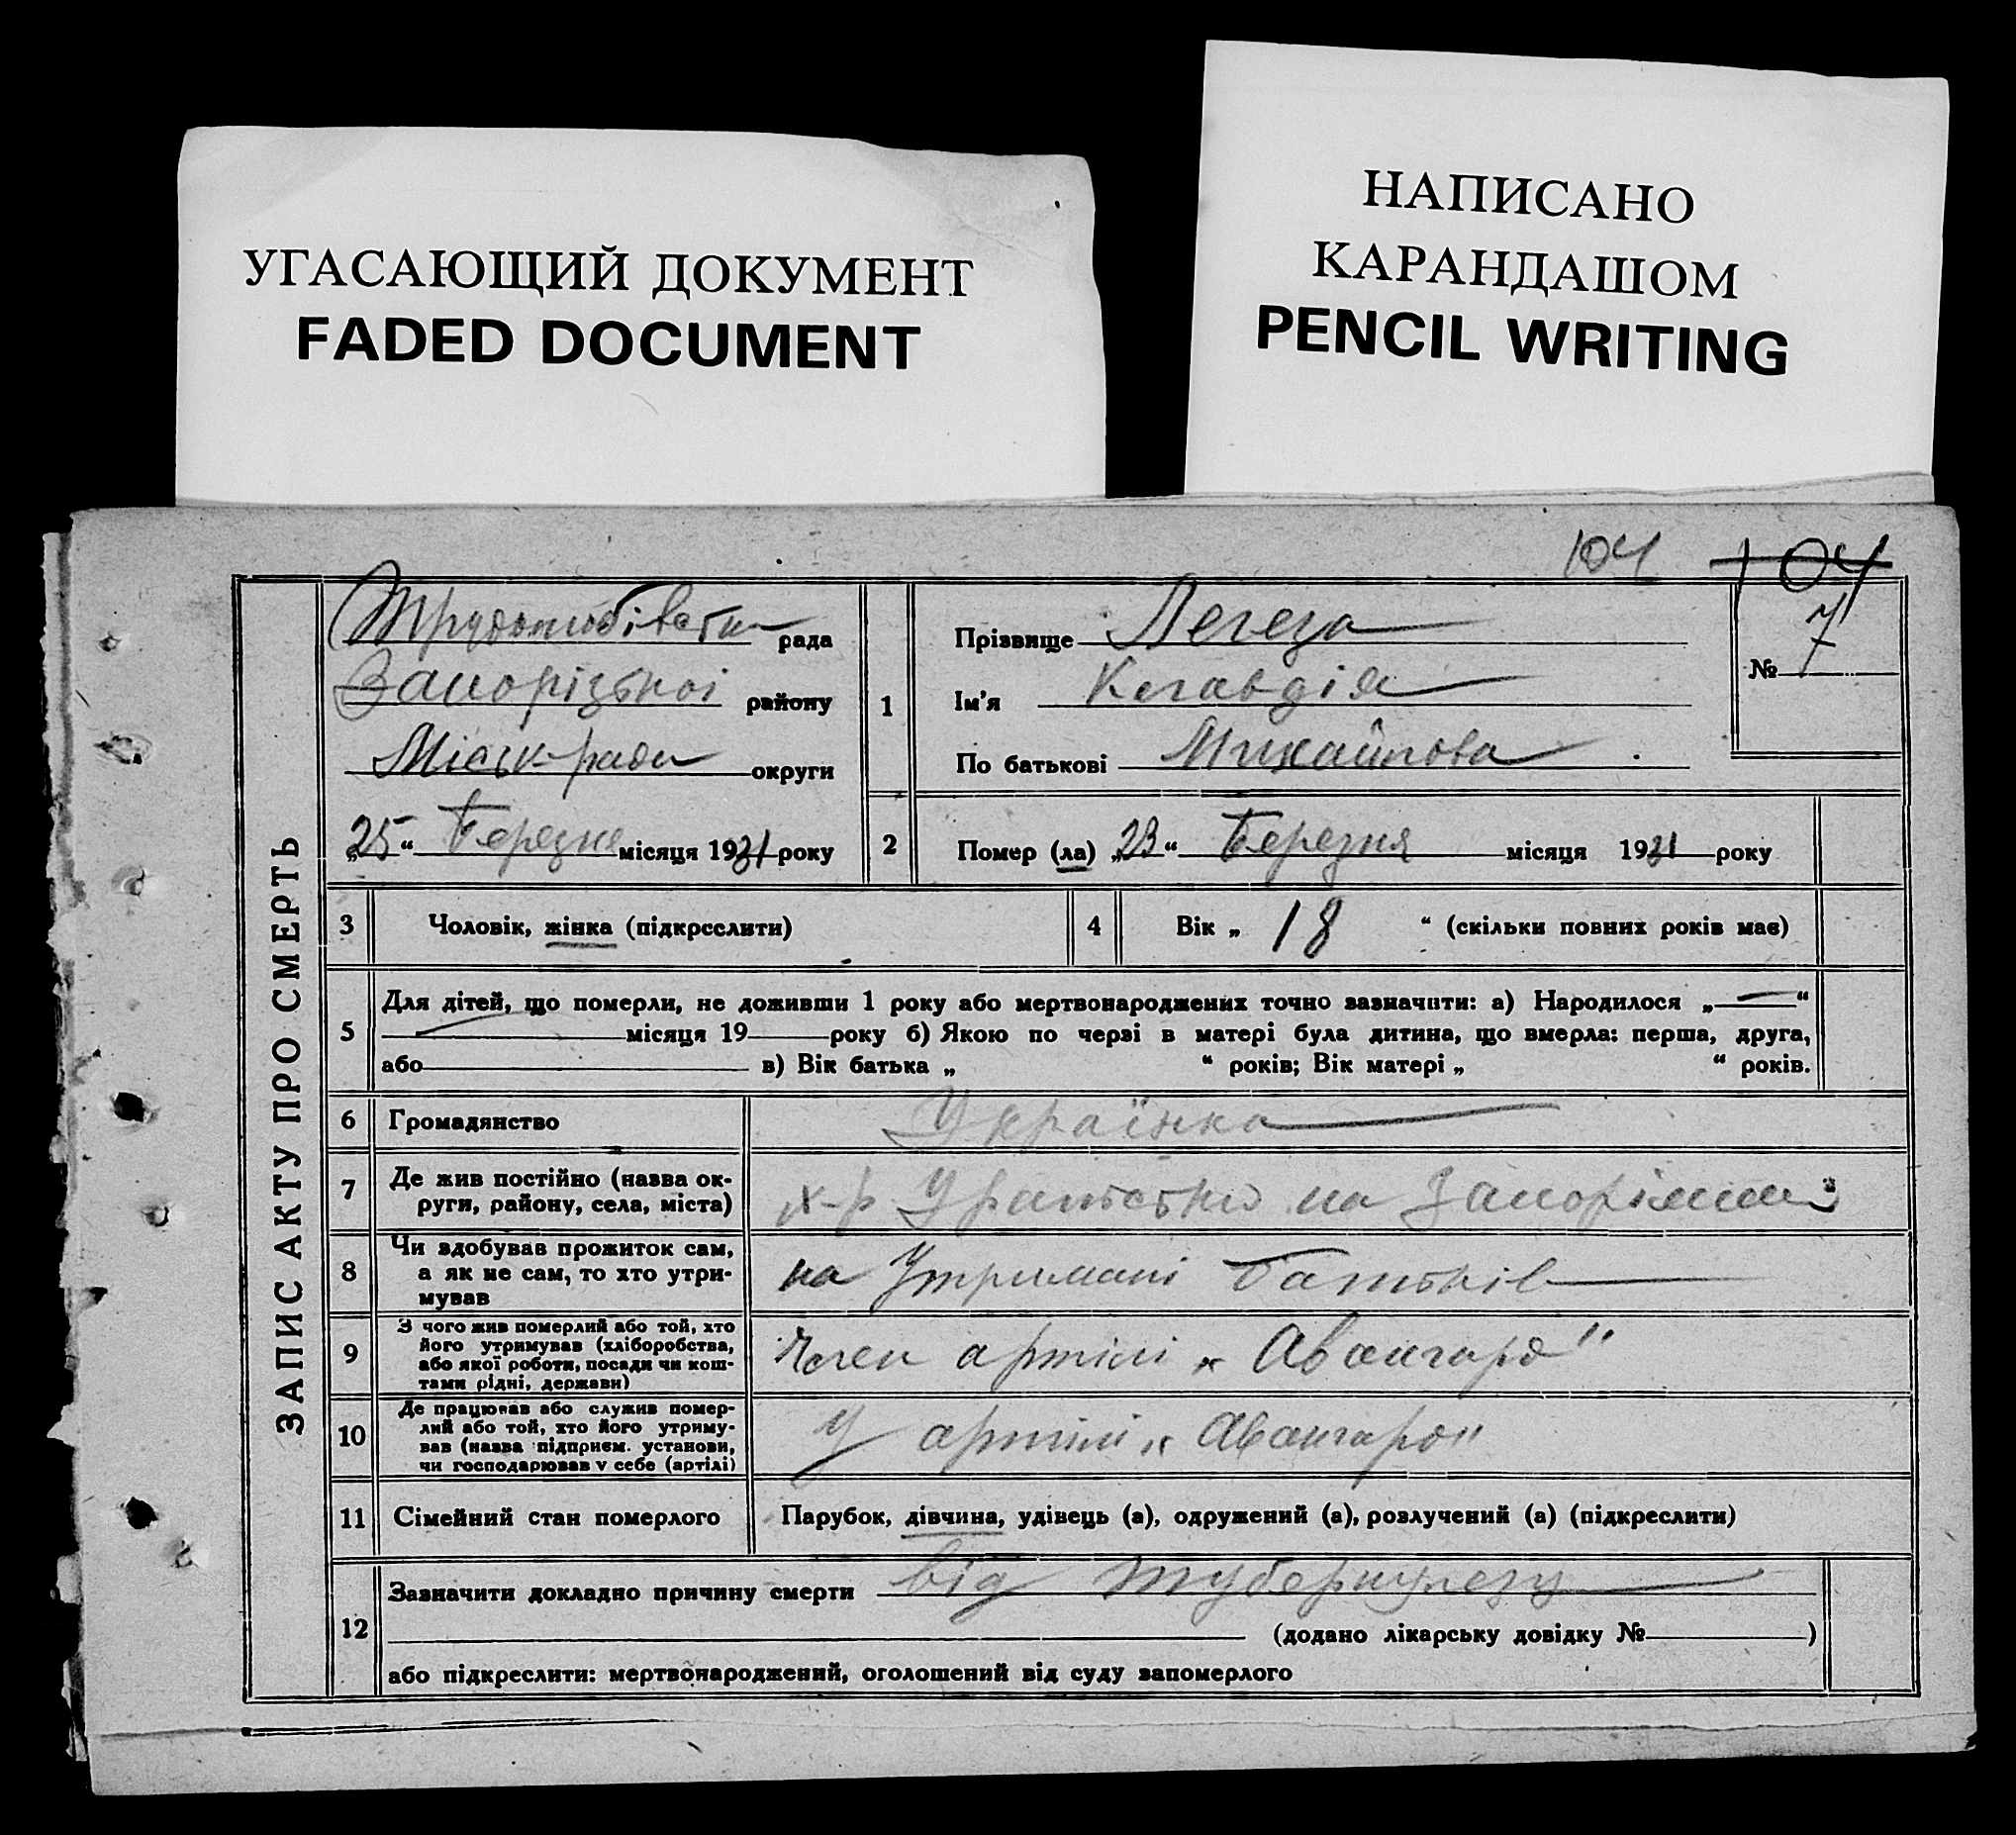 УГАСАЮЩИЙ ДОКУМЕНТ
FADED DOCUMENT
НАПИСАНО
КАРАНДАШОМ
PENCIL WRITING
104 104
ЗАПИС АКТУ ПРО СМЕРТЬ
рада
Запорізькоі району
Міськ-ради округи
„25“ Березня місяця 1931 року
1
Прізвище Легеза
Ім'я Клавдія
По батькові Михайлова
№ 7
2 Помер (ла) „23“ Березня місяця 1931 року
3 Чоловік, жінка (підкреслити)
4 Вік „ 18 “ (скільки повних років має)
5 Для дітей, що померли, не доживши 1 року або мертвонароджених точно зазначити: а) Народилося „—“
місяця 19 року б) Якою по черзі в матері була дитина, що вмерла: перша, друга,
або в) Вік батька „ “ років; Вік матері „ “ років.
6 Громадянство Українка
7 Де жив постійно (назва ок-
руги, району, села, міста)
х-р на
8 Чи здобував прожиток сам,
а як не сам, то хто утри-
мував
на Утримані Батьків
9 З чого жив померлий або той, хто
його утримував (хліборобства,
або якої роботи, посади чи кош-
тами рідні, держави)
Член артілі „Авангард"
10 Де працював або служив помер-
лий або той, хто його утриму-
вав (назва підприєм. установи,
чи господарював у себе (артілі)
У артілі „Авангард"
11 Сімейний стан померлого Парубок, дівчина, удівець (а), одружений (а), розлучений (а) (підкреслити)
12 Зазначити докладно причину смерти від туберкулезу
(додано лікарську довідку № )
або підкреслити: мертвонароджений, оголошений від суду запомерлого